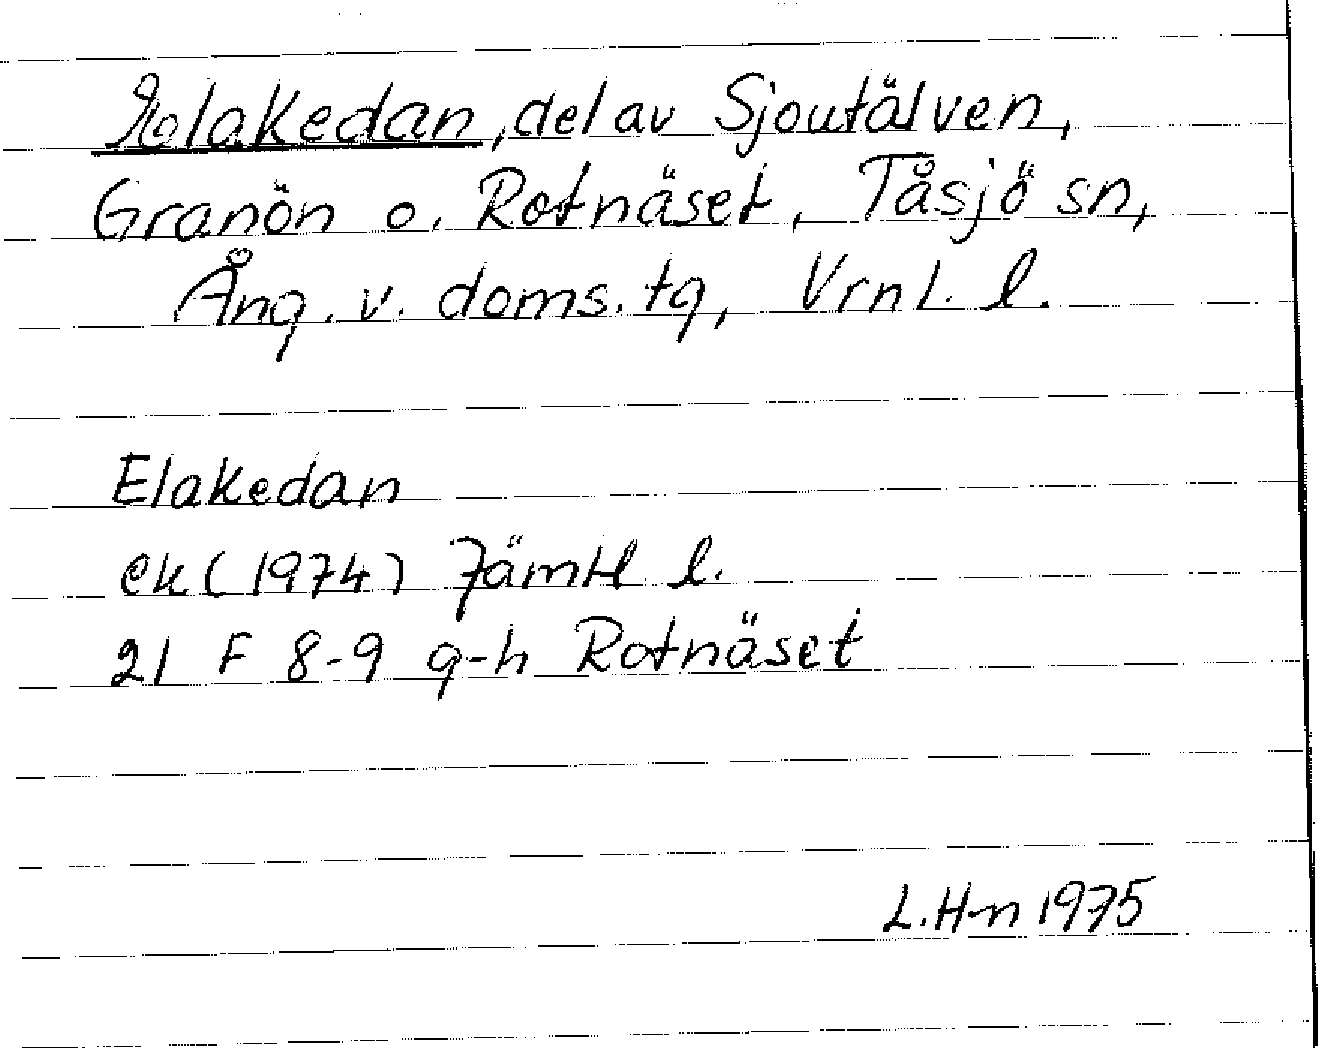 Elakedan, del av Sjoutälven,
Granön o. Rotnäset, Tåsjö sn,
Ång. v. doms. tg, Vrnl. l.
Elakedan
ek (1974) Jämtl l.
21 F 8-9 g-h Rotnäset
L.H-n 1975